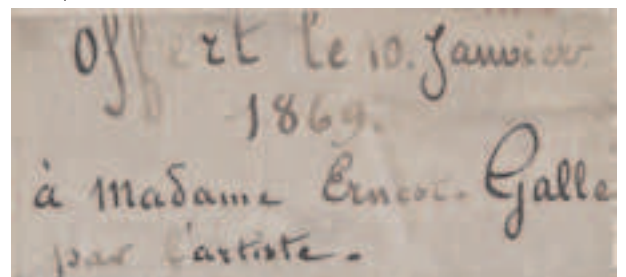 Offert le 10. Janvier
1869.
à Madame Ernest. Galle
par l'artiste.